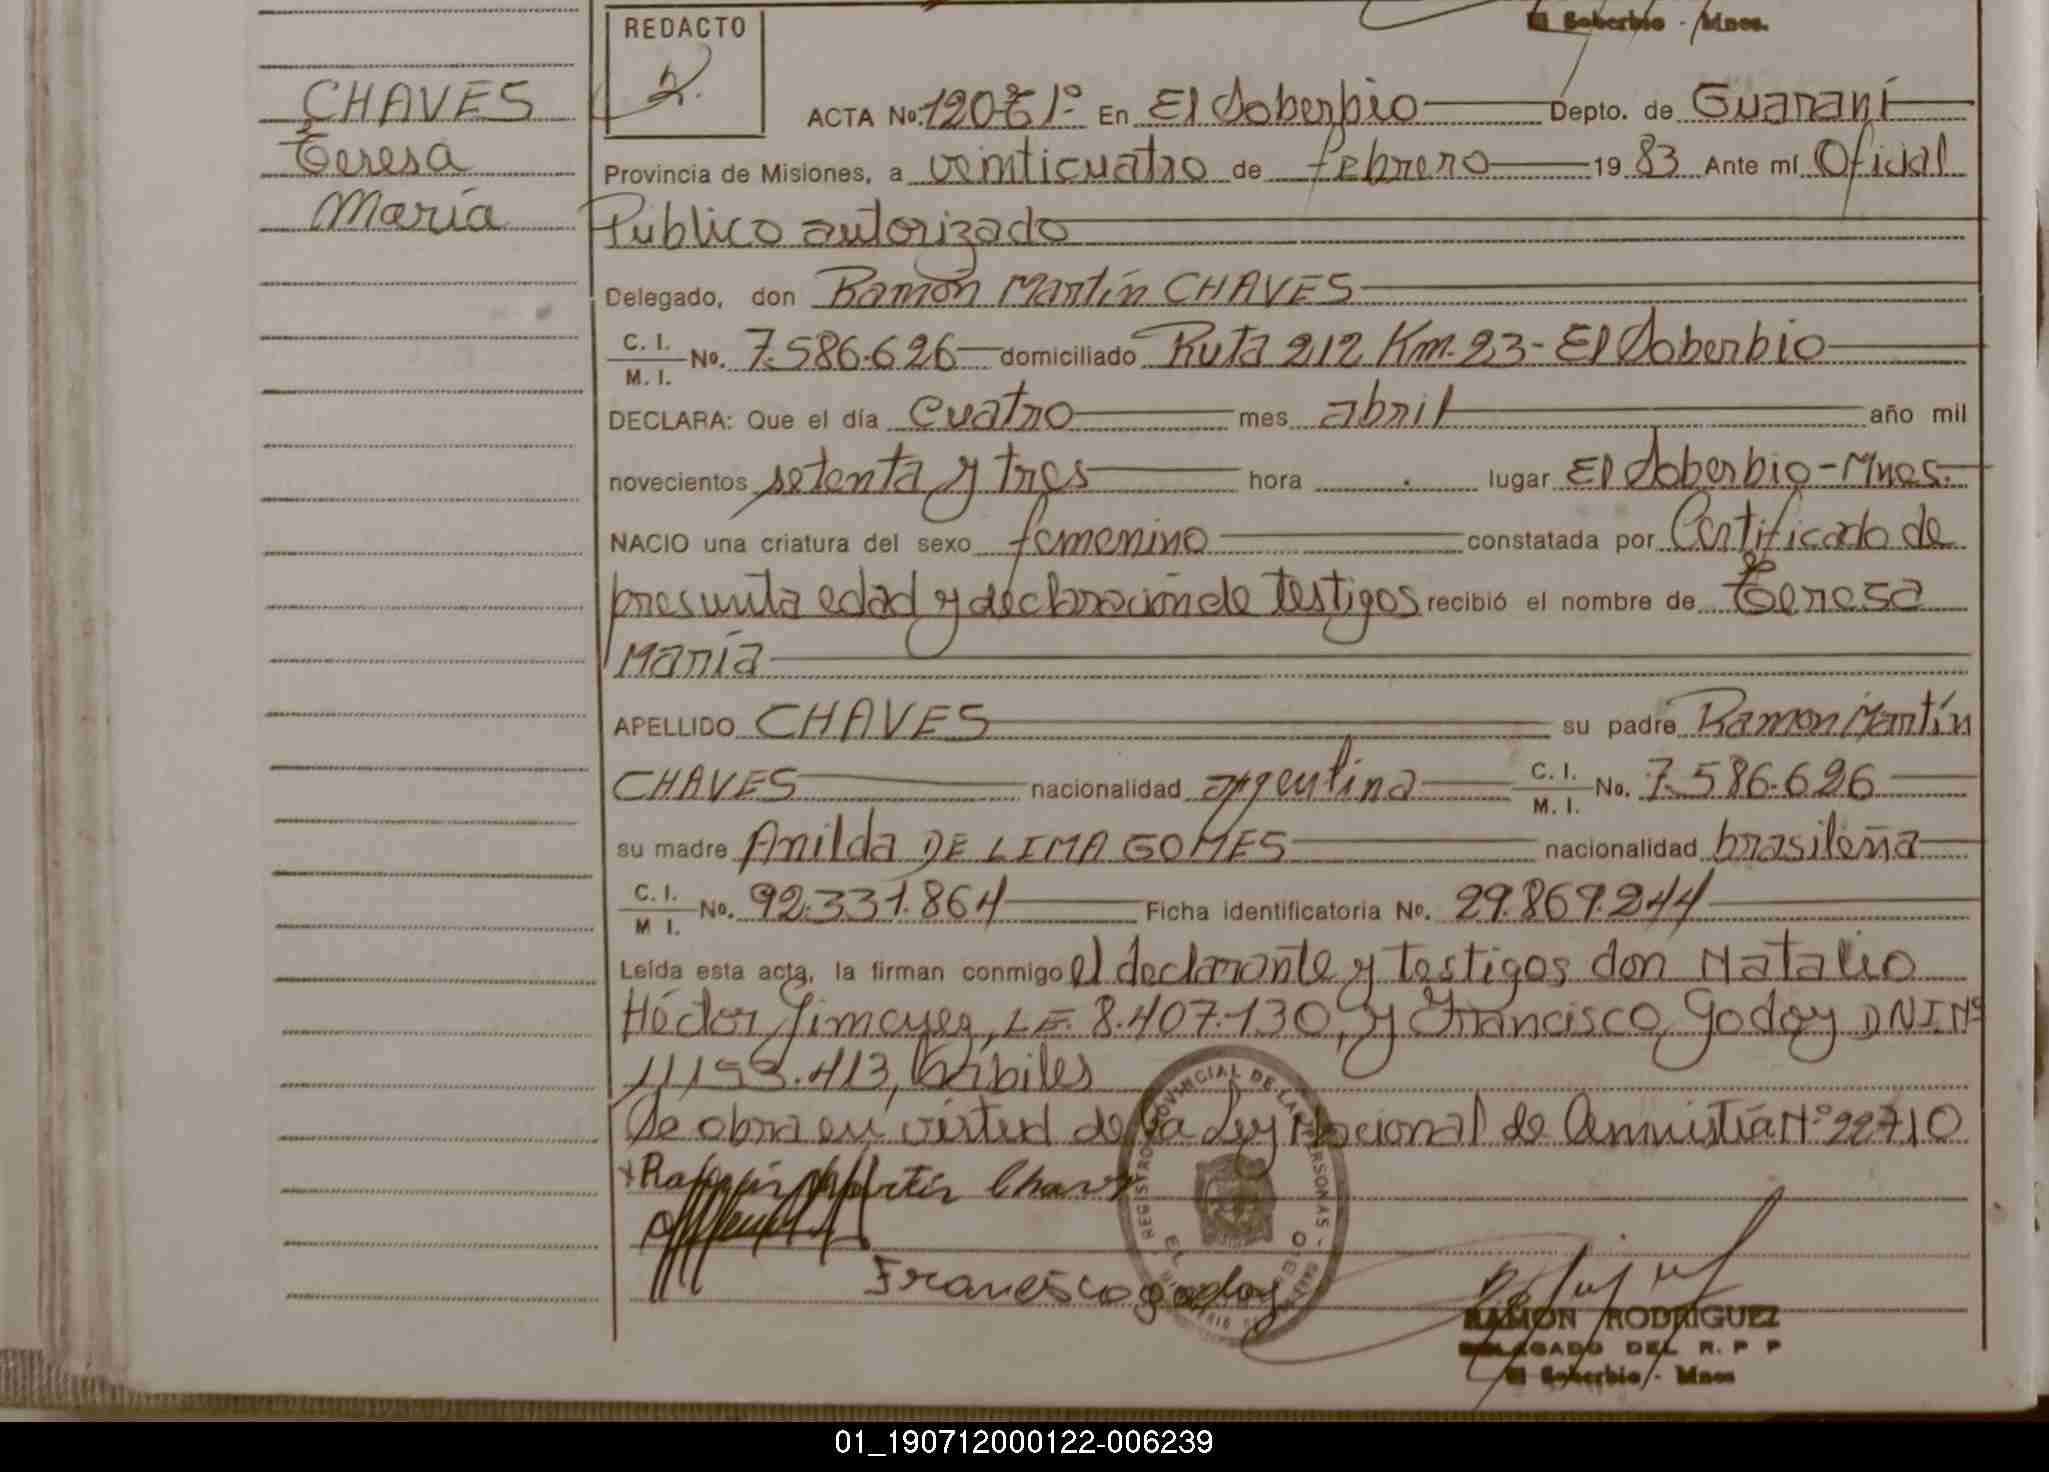 El Soberbio - Mnes.
REDACTO
2.
CHAVES
Teresa
María
ACTA No. 120 T 1º. En El Soberbio Depto. de Guaraní
Provincia de Misiones, a veinticuatro de febrero 19 83 Ante mí Oficial
Publico autorizado
Delegado, don Ramón Martín CHAVES
C. I.
M. I. No. 7.586.626 domiciliado Ruta 212 Km. 23 - El Soberbio
DECLARA: Que el día cuatro mes abril año mil
novecientos setenta y tres hora . lugar El Soberbio - Mnes.
NACIO una criatura del sexo femenino constatada por Certificado de
presunta edad y declaración de testigos recibió el nombre de Teresa
María
APELLIDO CHAVES su padre Ramón Martín
CHAVES nacionalidad argentina C. I.
M. I. No. 7.586.626
su madre Anilda DE LIMA GOMES nacionalidad brasileña
C. I.
M I. No. 92.331.864 Ficha identificatoria No. 29.869.244
Leída esta acta, la firman conmigo el declarante y testigos don Natalio
Héctor L.E. 8.407.130, y Francisco Godoy DNI Nº
413, hábiles
Se obra en virtud de la Ley Nacional de Amnistía Nº 22710
Ramón Martín Chaves
Francisco godoy
REGISTRO PROVINCIAL DE LAS PERSONAS
RAMON RODRIGUEZ
DELEGADO DEL R. P P
El Soberbio - Mnes
01_190712000122-006239